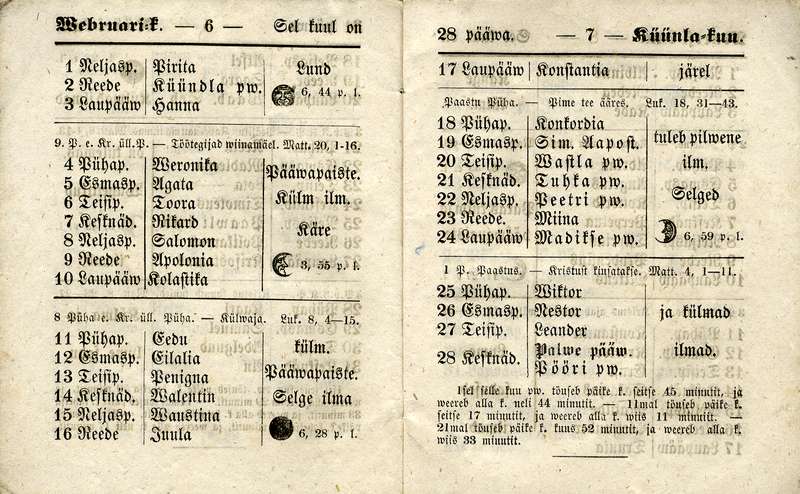 Webruari-k. — 6 — Sel kuul on
1 Neljasp. Pirita Lund
2 Reede Küündla pw. 6, 44 p. l.
3 Laupääw Hanna
9. P. e. Kr. üll.P. — Töötegijad wiinamäel. Matt. 20, 1-16.
4 Pühap. Weronika Pääwapaiste.
5 Esmasp. Agata Külm ilm.
6 Teisip. Toora
7 Kesknäd. Rikard Käre
8 Neljasp. Salomon
9 Reede Apolonia 3, 55 p. l.
10 Laupääw Kolastika
8 Püha e. Kr. üll. Püha. — Külwaja. Luk. 8, 4—15.
11 Pühap. Eedu külm.
12 Esmasp. Eilalia Pääwapaiste.
13 Teisip. Penigna
14 Kesknäd. Walentin Selge ilma
15 Neljasp. Waustina
16 Reede Juula 6, 28 p. l.
28 pääwa. — 7 — Küünla-kuu.
17 Laupääw Konstantia järel
Paastu Püha. — Pime tee ääres. Luk. 18, 31—43.
18 Pühap. Konkordia tuleb pilwene
19 Esmasp. Sim. Aapost.
20 Teisip. Wastla pw. ilm.
21 Kesknäd. Tuhka pw.
22 Neljasp. Peetri pw. Selged
23 Reede. Miina
24 Laupääw Madikse pw. 6, 59 p. l.
1 P. Paastus. — Kristust kiusatakse. Matt. 4, 1—11.
25 Pühap. Wiktor
26 Esmasp. Nestor ja külmad
27 Teisip. Leander
28 Kesknäd. Palwe pääw. ilmad.
Pööri pw.
1sel selle kuu pw. tõuseb päike k. seitse 45 minutit, ja
weereb alla k. neli 44 minutit. — 11mal tõuseb päike k.
seitse 17 minutit, ja weereb alla k. wiis 11 minutit. —
21mal tõuseb päike k. kuus 52 minutit, ja weereb alla k.
wiis 33 minutit.